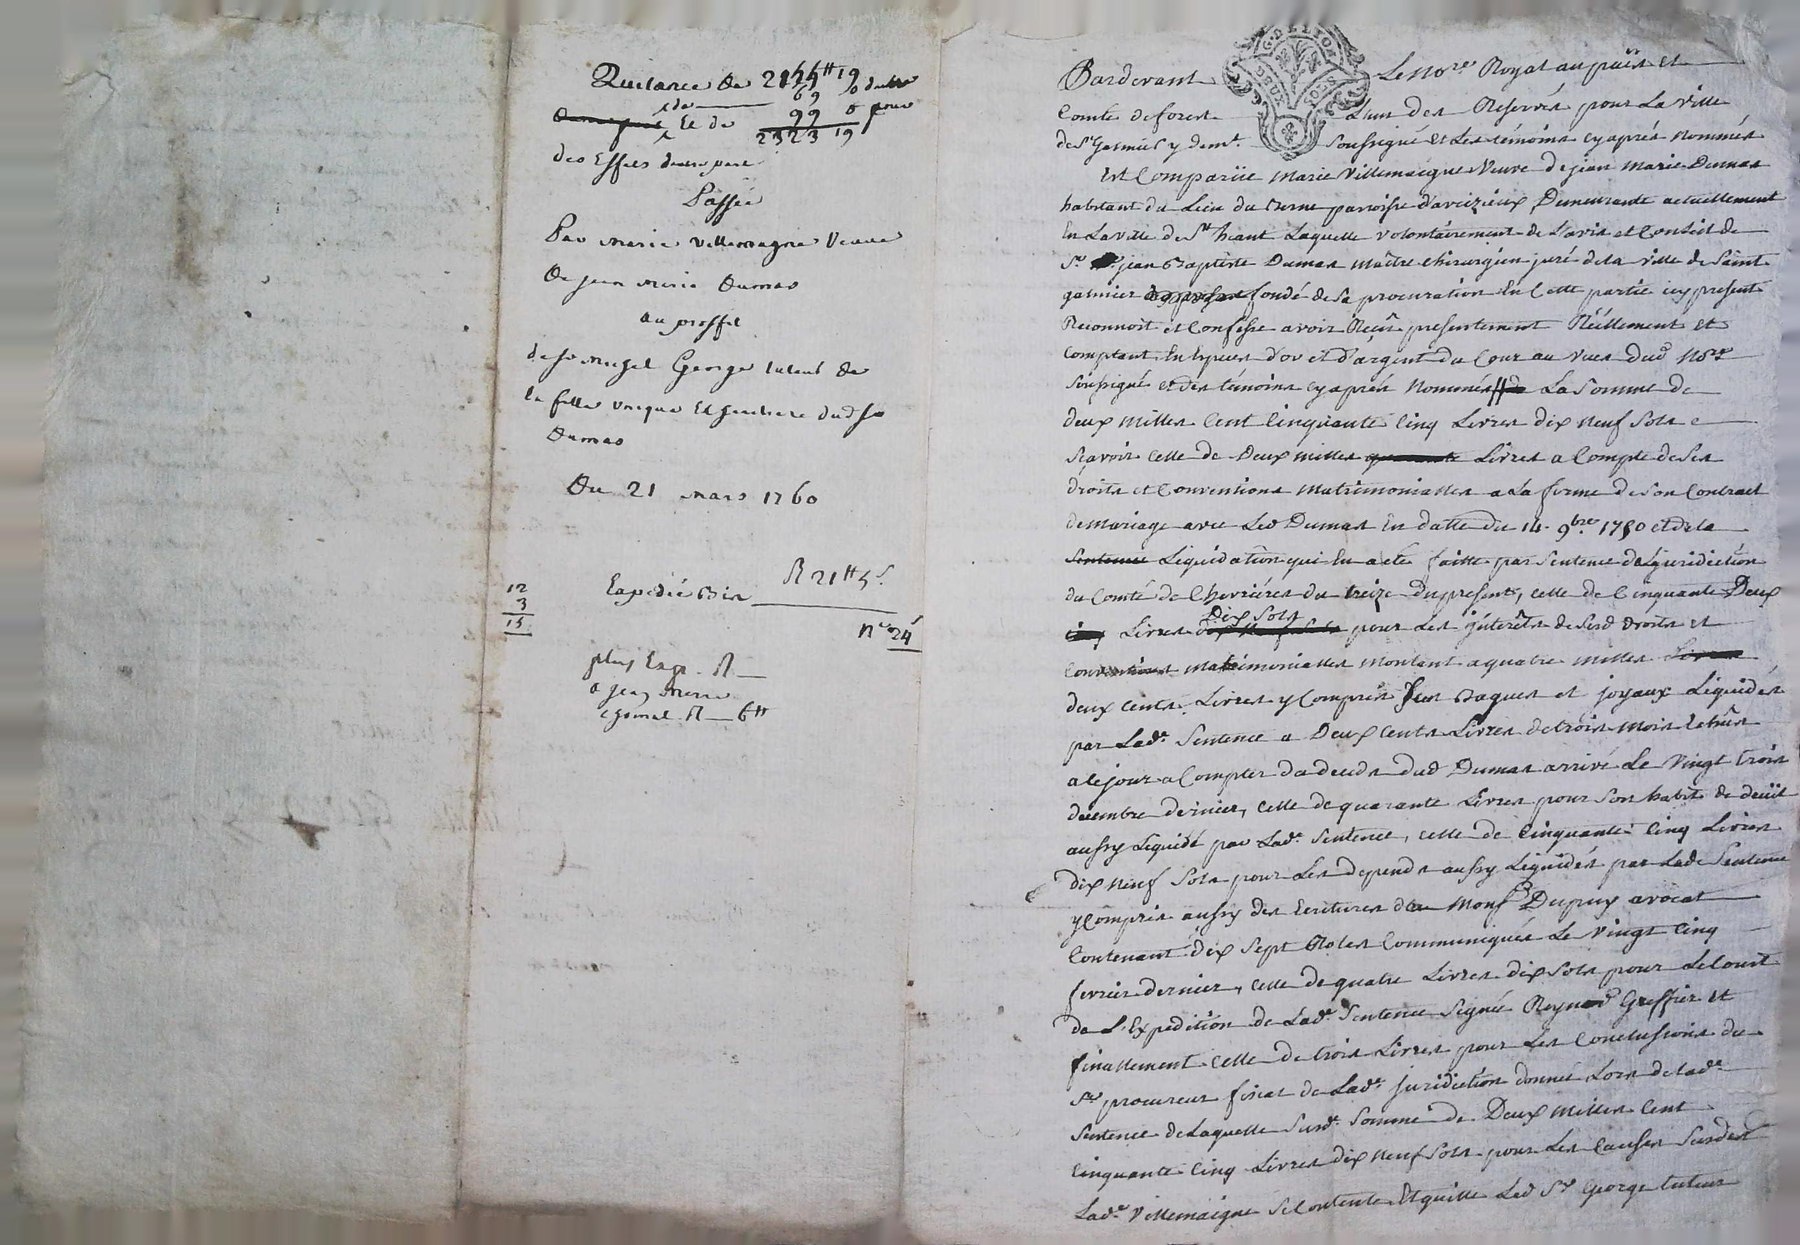 Quitance de 2155 ͭ ͭ 19
69 0
Et de 99 0 pour
2323 19
des Effets
Passée
Par Marie Villemagne Veuve
De jean Marie Dumas
au proffit
de sr Michel George tuteur de
la fille unique Et heritiere dud sr
Dumas
Du 21 Mars 1760
12
3
15
Expedié Bis
R 21 ͭ ͭ 5 s.
n° 24
plus Exp. R
a jean Marie
R 6 ͭ ͭ
G. DE LYON
DEUX SOLS
Pardevant Le No.re Royal au païs et
Comté de forest L'un des Reservés pour La ville
de St Galmier y demt. soussigné et Les témoins cy après Nommés
Est Comparüe Marie Villemaigne Veuve de jean Marie Dumas
habitant du Lieu du Verne parroisse d'aveizieux, Demeurante actuellement
En La ville de St heant Laquelle volontairement de L'avis et Conseil de
Sr. jean Baptiste Dumas Maître chirurgien juré de la ville de Saint
galmier fondé de sa procuration En Cette partie icy present
Reconnoit et Confesse avoir Reçû presentement Réellement et
Comptant En Especes d'or et d'argent du Cour au vües dud No.re
soussigné et des témoins cy après Nommés La Somme de
deux Milles Cent Cinquante Cinq Livres dix Neuf Sols
sçavoir celle de Deux milles quarante Livres a Compte de ses
droits et Conventions Matrimonialles a La forme de son Contract
de Mariage avec Led Dumas En datte du 14. 9bre. 1750 et de la
Sentence Liquidation qui En a été faitte par Sentence de La juridiction
du Comté de Chevriéres du treize du present, celle de Cinquante Deux
Dix Sols
Cinq Livres dix Neuf Sols pour Les jnterêts de sesd Droits et
Conventions Matrimonialles Montant a quatre Milles Livres
deux Cents Livres y Compris ses Bagues et joyaux Liquidés
par Lade. Sentence a Deux Cents Livres de trois Mois Echûs
a ce jour a Compter du deceds dud Dumas arrivé Le Vingt trois
decembre dernier, celle de quarante Livres pour son habit de deüil
aussy Liquidé par Lade. Sentence, celle de Cinquante Cinq Livres
dix Neuf Sols pour Les depends aussy Liquidés par Lade Sentence
y Compris aussy des Ecritures de Monsr Dupuy avocat
Contenant dix sept Rolles Communiqués Le Vingt Cinq
fevrier dernier, celle de quatre Livres dix Sols pour Le Cout
de L'Expedition de Lade. Sentence Signée Reynard Greffier et
finallement celle de trois Livres pour Les Conclusions du
Sr. procureur fiscal de Lade. juridiction donnée Lors de Lade.
Sentence de Laquelle susde. Somme de Deux Milles Cent
Cinquante Cinq Livres dix Neuf Sols pour Les Causes Susdes
Lade. Villemaigne se Contente Et quitte Led Sr George tuteur